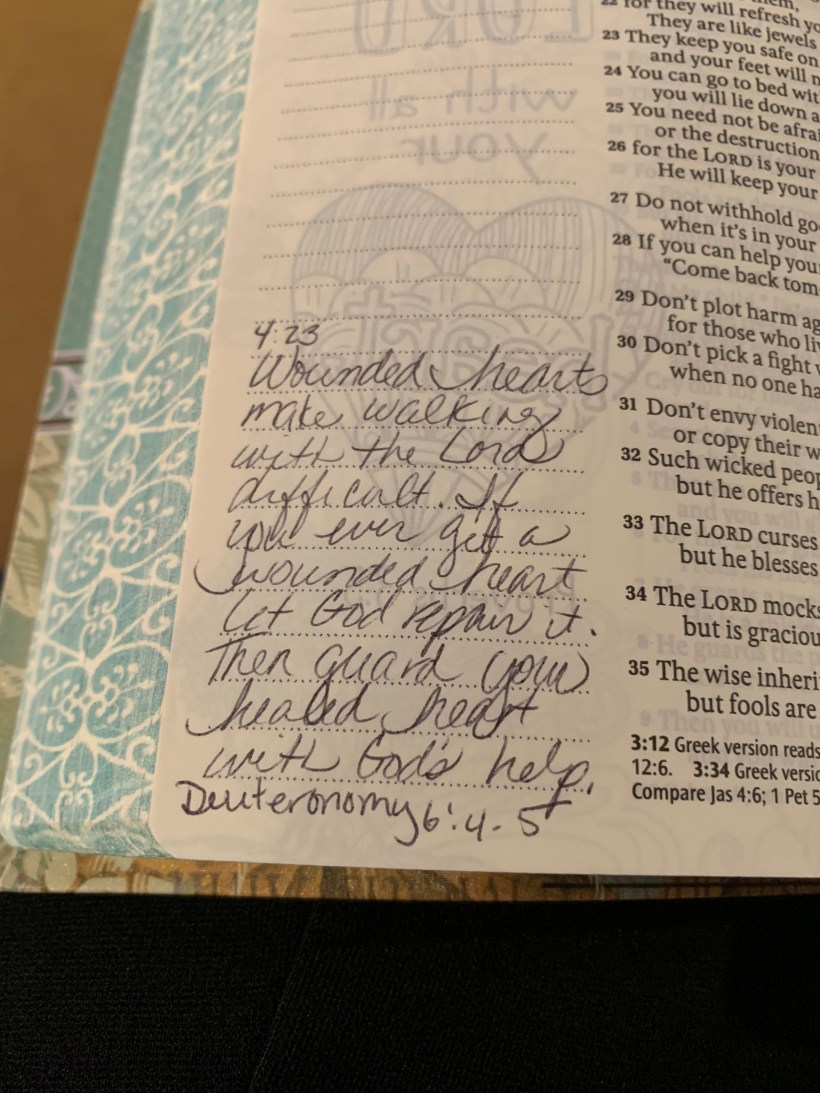 LORD
with all
your
heart
4:23
Wounded hearts
make walking
with the Lord
difficult. If
you ever get a
wounded heart
let God repair it.
Then guard your
healed heart
with God's help.
Deuteronomy 6:4-5
22 for they will refresh yo
They are like jewels
23 They keep you safe on
and your feet will n
24 You can go to bed wit
you will lie down a
25 You need not be afrai
or the destruction
26 for the LORD is your
He will keep your
27 Do not withhold go
when it's in your
28 If you can help you
"Come back tom
29 Don't plot harm ag
for those who li
30 Don't pick a fight
when no one ha
31 Don't envy violen
or copy their w
32 Such wicked peop
but he offers h
33 The LORD curses
but he blesses
34 The LORD mocks
but is graciou
35 The wise inheri
but fools are
3:12 Greek version reads
12:6. 3:34 Greek versio
Compare Jas 4:6; 1 Pet 5